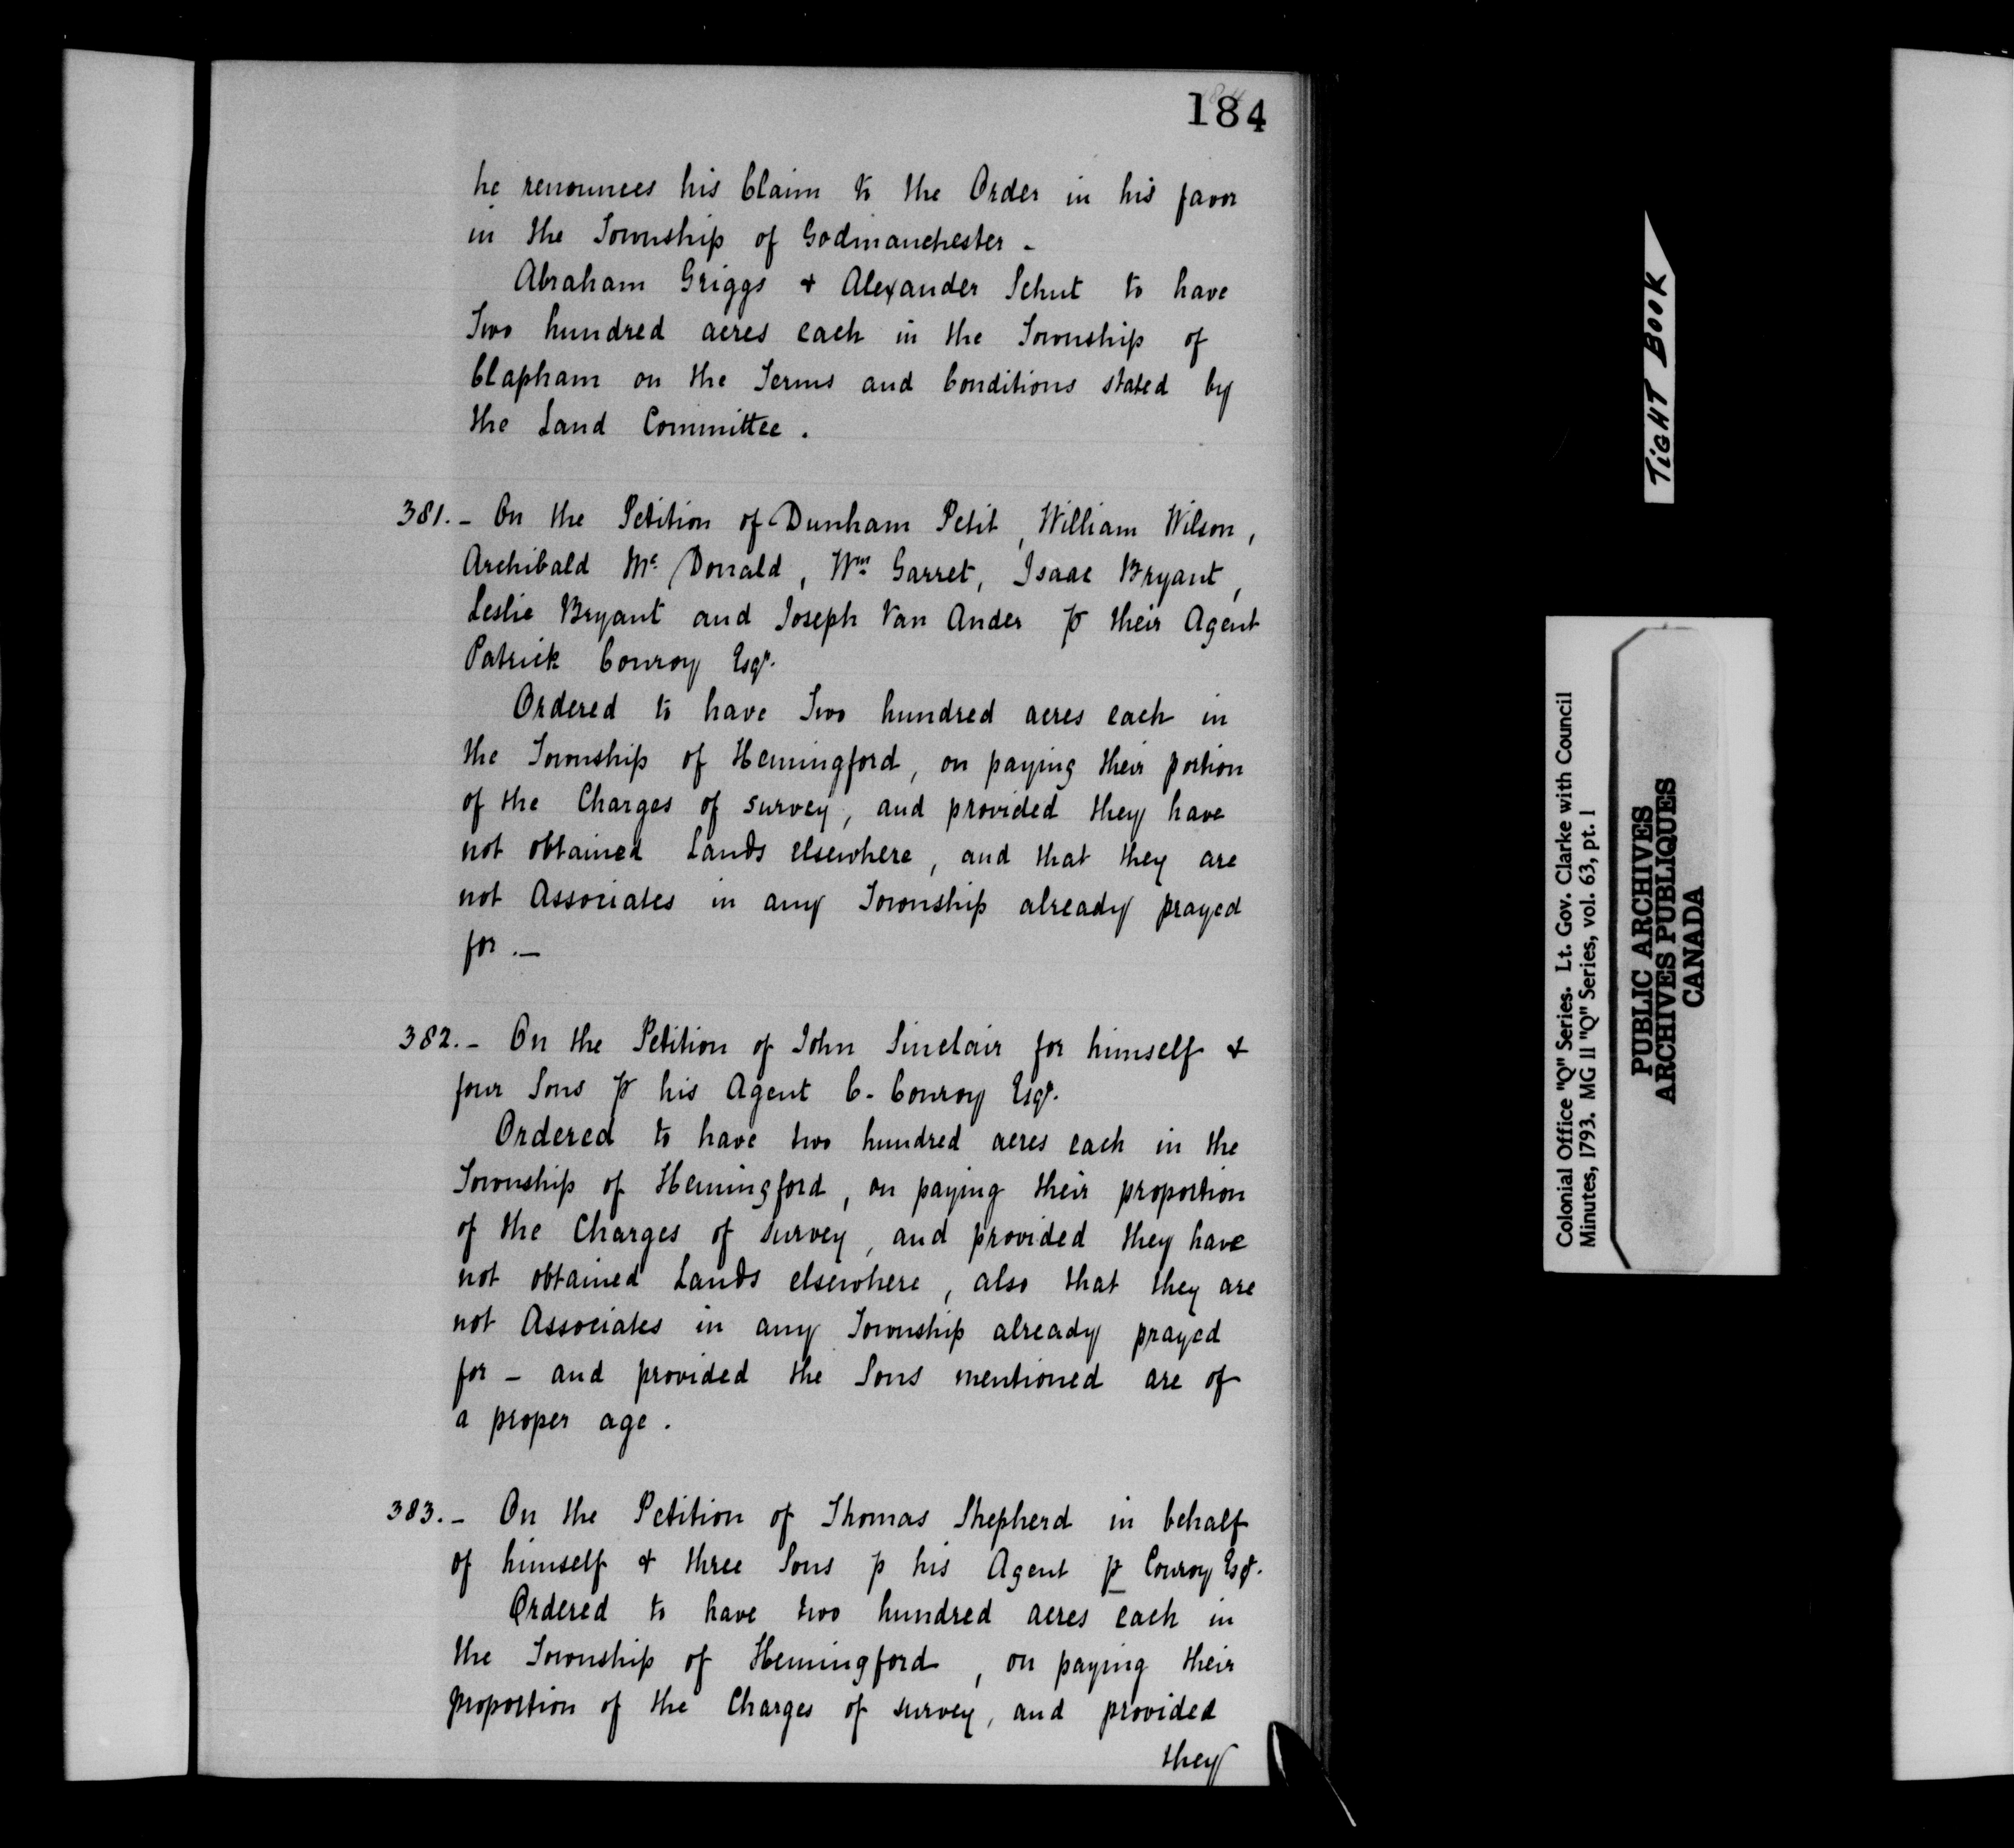 184
he renounces his Claim to the Order in his favor
in the Township of Godmanchester -
Abraham Griggs & Alexander Schut to have
Two hundred acres each in the Township of
Clapham on the Terms and Conditions stated by
the Land Committee .
381. - On the Petition of Dunham Petit, William Wilson,
Archibald Mc Donald, Wm Garret, Isaac Bryant,
Leslie Bryant and Joseph Van Ander p their Agent
Patrick Conroy Esqr.
Ordered to have Two hundred acres each in
the Township of Hemingford, on paying their portion
of the Charges of survey, and provided they have
not obtained Lands elsewhere, and that they are
not Associates in any Township already prayed
for . -
382. - On the Petition of John Sinclair for himself &
four Sons p his Agent C. Conroy Esqr.
Ordered to have two hundred acres each in the
Township of Hemingford, on paying their proportion
of the Charges of survey, and provided they have
not obtained Lands elsewhere, also that they are
not Associates in any Township already prayed
for - and provided the Sons mentioned are of
a proper age .
383. - On the Petition of Thomas Shepherd in behalf
of himself & three Sons p his Agent P Conroy Esqr.
Ordered to have two hundred acres each in
the Township of Hemingford, on paying their
proportion of the Charges of survey, and provided
they
TIGHT BOOK
Colonial Office "Q" Series. Lt. Gov. Clarke with Council
Minutes, 1793. MG 11 "Q" Series, vol. 63, pt. 1
PUBLIC ARCHIVES
ARCHIVES PUBLIQUES
CANADA